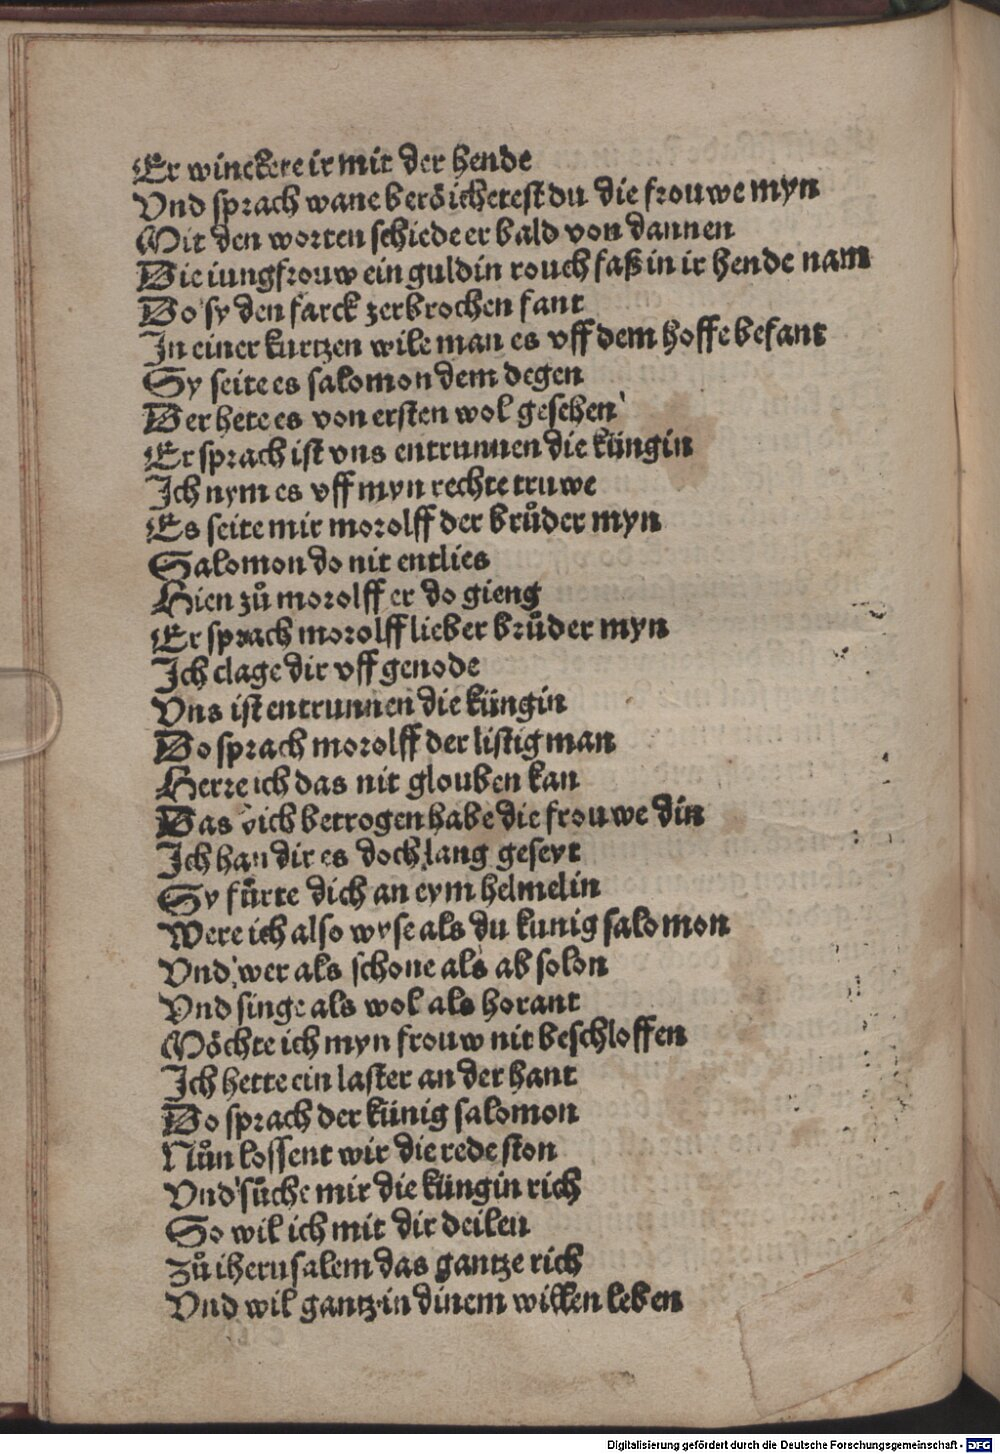 Er winckete ir mit der hende
Vnd sprach wane beröichetest du die frouwe myn
Mit den worten schiede er bald von dannen
Die iungfrouw ein guldin rouch faß in ir hende nam
Do sy den sarck zerbrochen fant
In einer kurtzen wile man es vff dem hoffe befant
Sy seite es salomon dem degen
Der hete es von ersten wol gesehen
Er sprach ist vns entrunnen die küngin
Ich nym es vff myn rechte truwe
Es seite mir morolff der brůder myn
Salomon do nit entlies
Hien zů morolff er do gieng
Er sprach morolff lieber brůder myn
Ich clage dir vff genode
Vns ist entrunnen die küngin
Do sprach morolff der listig man
Herre ich das nit glouben kan
Das dich betrogen habe die frouwe din
Ich han dir es doch lang geseyt
Sy fürte dich an eym helmelin
Were ich also wyse als du kunig salomon
Vnd wer als schone als ab solon
Vnd singe als wol als horant
Möchte ich myn frouw nit beschloffen
Ich hette ein laster an der hant
Do sprach der künig salomon
Nůn lossent wir die rede ston
Vnd sůche mir die küngin rich
So wil ich mit dir deilen
Zů iherusalem das gantze rich
Vnd wil gantz in dinem willen leben
Digitalisierung gefördert durch die Deutsche Forschungsgemeinschaft - DFG